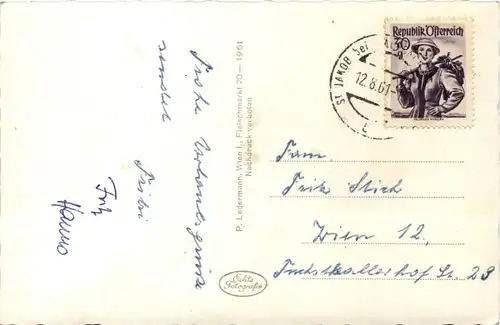 Frohe Urlaubsgrüsse
sendet
Fritz
Hanno
P. Ledermann, Wien I., Fleischmarkt 20 — 1961
Nachdruck verboten
Echte
Fotografie
Republik Österreich
30
g
ST. JAKOB bei
12.8.61
Fam
Fritz Stich
Wien 12,
St. 23